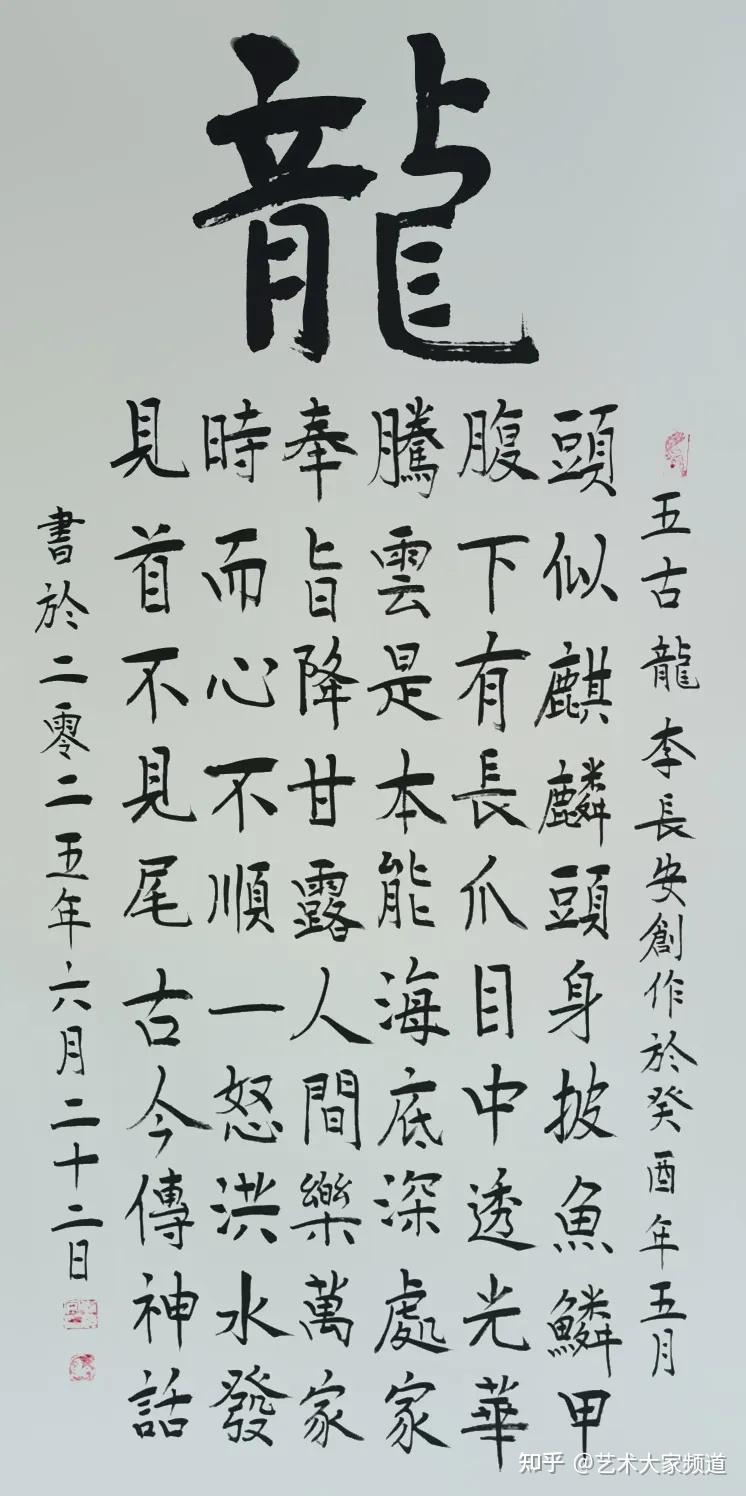 龍
五古 龍 李長安創作於癸酉年五月
頭似麒麟頭身披魚鱗甲
腹下有長爪目中透光華
騰雲是本能海底深處家
奉旨降甘露人間樂萬家
時而心不順一怒洪水發
見首不見尾古今傳神話
書於二零二五年六月二十二日
知乎 @艺术大家频道